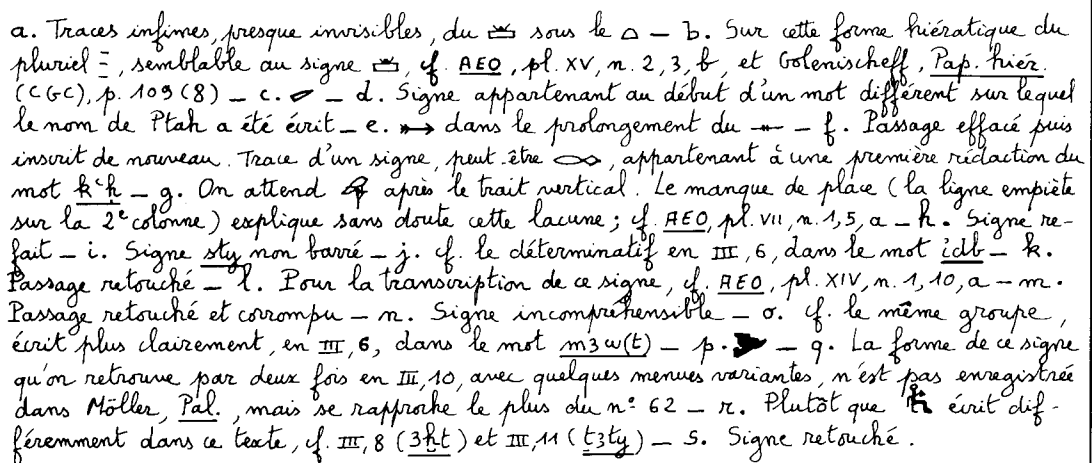 a. Traces infimes, presque invisibles, du sous le – b. Sur cette forme hiératique du
pluriel, semblable au signe, cf. AEO, pl. XV, n. 2, 3, b, et Golenischeff, Pap. hiér.
(CGC), p. 109 (8) – c. – d. Signe appartenant au début d'un mot différent sur lequel
le nom de Ptah a été écrit – e. dans le prolongement du – f. Passage effacé puis
inscrit de nouveau. Trace d'un signe, peut-être, appartenant à une première rédaction du
mot kʿḥ – g. On attend après le trait vertical. Le manque de place (la ligne empiète
sur la 2e colonne) explique sans doute cette lacune; cf. AEO, pl. VII, n. 1, 5, a – h. Signe re-
fait – i. Signe sty non barré – j. cf. le déterminatif en III, 6, dans le mot idb – k.
Passage retouché – l. Pour la transcription de ce signe, cf. AEO, pl. XIV, n. 1, 10, a – m.
Passage retouché et corrompu – n. Signe incompréhensible – o. cf. le même groupe,
écrit plus clairement, en III, 6, dans le mot m3w(t) – p. – q. La forme de ce signe
qu'on retrouve par deux fois en III, 10, avec quelques menues variantes, n'est pas enregistrée
dans Möller, Pal., mais se rapproche le plus du n° 62 – r. Plutôt que écrit dif-
féremment dans ce texte, cf. III, 8 (3ḫt) et III, 11 (t3ty) – s. Signe retouché.